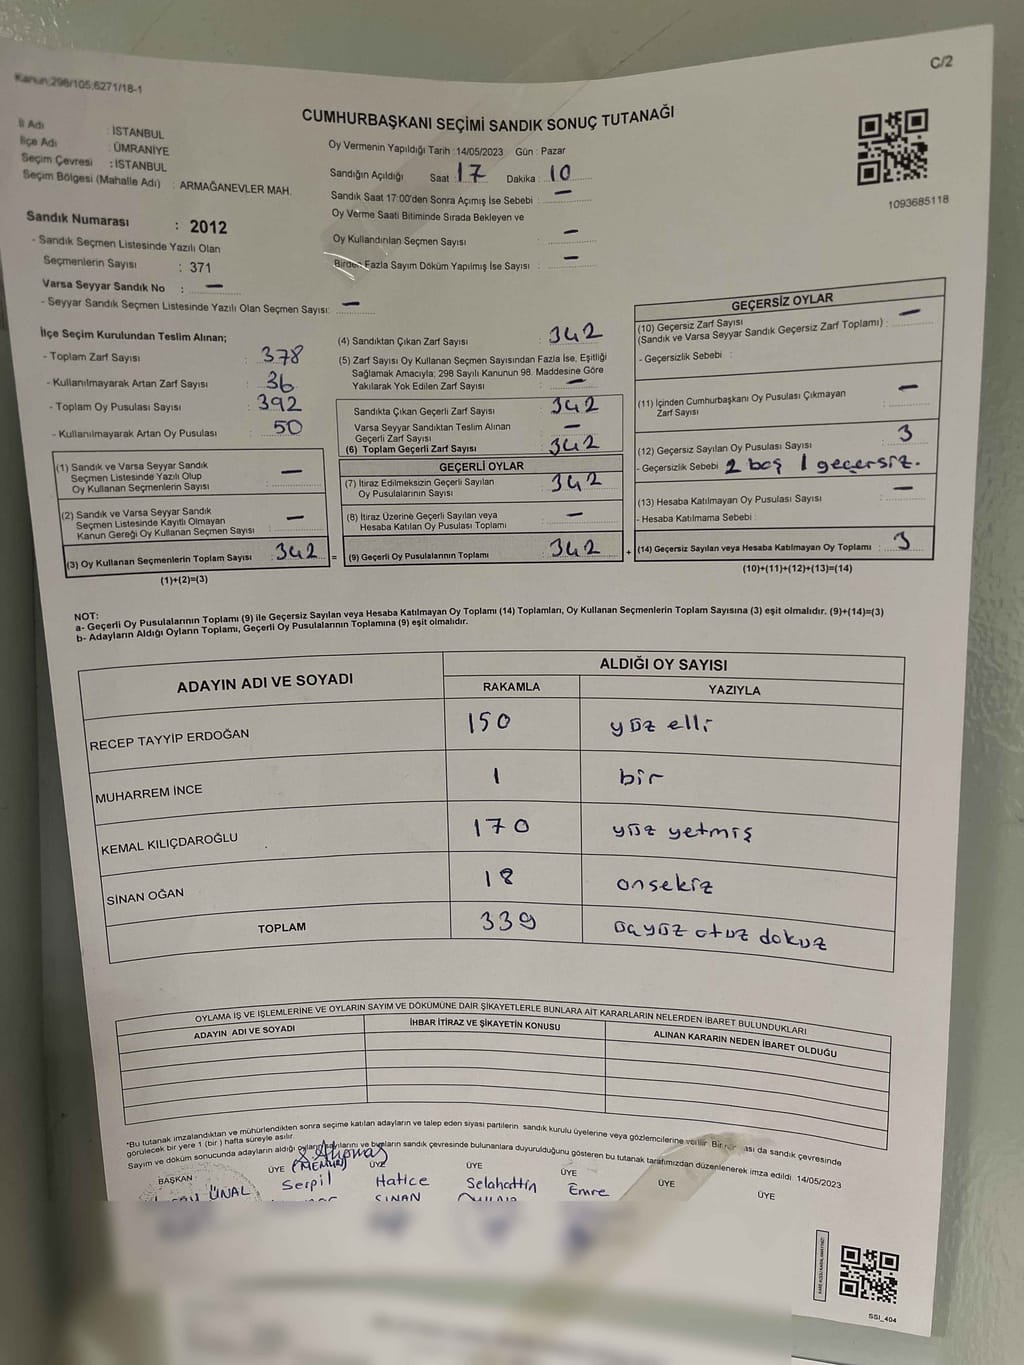 Kanun;298/105,6271/18-1
C/2
CUMHURBAŞKANI SEÇİMİ SANDIK SONUÇ TUTANAĞI
İl Adı : İSTANBUL
İlçe Adı : ÜMRANİYE
Seçim Çevresi : İSTANBUL
Seçim Bölgesi (Mahalle Adı) : ARMAĞANEVLER MAH.
Oy Vermenin Yapıldığı Tarih :14/05/2023 Gün : Pazar
Sandığın Açıldığı Saat : 17 Dakika : 10
Sandık Saat 17:00'den Sonra Açımış İse Sebebi : -
Oy Verme Saati Bitiminde Sırada Bekleyen ve
Oy Kullandırılan Seçmen Sayısı : -
Birden Fazla Sayım Döküm Yapılmış İse Sayısı : -
1093685118
Sandık Numarası : 2012
- Sandık Seçmen Listesinde Yazılı Olan
Seçmenlerin Sayısı : 371
Varsa Seyyar Sandık No : -
- Seyyar Sandık Seçmen Listesinde Yazılı Olan Seçmen Sayısı: -
İlçe Seçim Kurulundan Teslim Alınan;
- Toplam Zarf Sayısı : 378
- Kullanılmayarak Artan Zarf Sayısı : 36
- Toplam Oy Pusulası Sayısı : 392
- Kullanılmayarak Artan Oy Pusulası : 50
(1) Sandık ve Varsa Seyyar Sandık
Seçmen Listesinde Yazılı Olup
Oy Kullanan Seçmenlerin Sayısı : -
(2) Sandık ve Varsa Seyyar Sandık
Seçmen Listesinde Kayıtlı Olmayan
Kanun Gereği Oy Kullanan Seçmen Sayısı : -
(3) Oy Kullanan Seçmenlerin Toplam Sayısı : 342
(1)+(2)=(3)
(4) Sandıktan Çıkan Zarf Sayısı : 342
(5) Zarf Sayısı Oy Kullanan Seçmen Sayısından Fazla İse, Eşitliği
Sağlamak Amacıyla; 298 Sayılı Kanunun 98. Maddesine Göre
Yakılarak Yok Edilen Zarf Sayısı : -
Sandıkta Çıkan Geçerli Zarf Sayısı : 342
Varsa Seyyar Sandıktan Teslim Alınan
Geçerli Zarf Sayısı : -
(6) Toplam Geçerli Zarf Sayısı : 342
GEÇERLİ OYLAR
(7) İtiraz Edilmeksizin Geçerli Sayılan
Oy Pusulalarının Sayısı : 342
(8) İtiraz Üzerine Geçerli Sayılan veya
Hesaba Katılan Oy Pusulası Toplamı : -
= (9) Geçerli Oy Pusulalarının Toplamı : 342
GEÇERSİZ OYLAR
(10) Geçersiz Zarf Sayısı
(Sandık ve Varsa Seyyar Sandık Geçersiz Zarf Toplamı) : -
- Geçersizlik Sebebi :
(11) İçinden Cumhurbaşkanı Oy Pusulası Çıkmayan
Zarf Sayısı : -
(12) Geçersiz Sayılan Oy Pusulası Sayısı : 3
- Geçersizlik Sebebi : 2 boş 1 geçersiz.
(13) Hesaba Katılmayan Oy Pusulası Sayısı : -
- Hesaba Katılmama Sebebi :
+ (14) Geçersiz Sayılan veya Hesaba Katılmayan Oy Toplamı : 3
(10)+(11)+(12)+(13)=(14)
NOT:
a- Geçerli Oy Pusulalarının Toplamı (9) ile Geçersiz Sayılan veya Hesaba Katılmayan Oy Toplamı (14) Toplamları, Oy Kullanan Seçmenlerin Toplam Sayısına (3) eşit olmalıdır. (9)+(14)=(3)
b- Adayların Aldığı Oyların Toplamı, Geçerli Oy Pusulalarının Toplamına (9) eşit olmalıdır.
ADAYIN ADI VE SOYADI
ALDIĞI OY SAYISI
RAKAMLA YAZIYLA
RECEP TAYYİP ERDOĞAN 150 yüz elli
MUHARREM İNCE 1 bir
KEMAL KILIÇDAROĞLU 170 yüz yetmiş
SİNAN OĞAN 18 onsekiz
TOPLAM 339 üçyüz otuz dokuz
OYLAMA İŞ VE İŞLEMLERİNE VE OYLARIN SAYIM VE DÖKÜMÜNE DAİR ŞİKAYETLERLE BUNLARA AİT KARARLARIN NELERDEN İBARET BULUNDUKLARI
ADAYIN ADI VE SOYADI İHBAR İTİRAZ VE ŞİKAYETİN KONUSU ALINAN KARARIN NEDEN İBARET OLDUĞU
"Bu tutanak imzalandıktan ve mühürlendikten sonra seçime katılan adayların ve talep eden siyasi partilerin sandık kurulu üyelerine veya gözlemcilerine verilir. Bir da sandık çevresinde
görülecek bir yere 1 (bir) hafta süreyle asılır.
Sayım ve döküm sonucunda adayların aldığı ve bunların sandık çevresinde bulunanlara duyurulduğunu gösteren bu tutanak tarafımızdan düzenlenerek imza edildi. 14/05/2023
BAŞKAN ÜYE (MEMUR) ÜYE ÜYE ÜYE ÜYE ÜYE
ÜNAL Serpil Hatice Selahattin Emre
SINAN
SSI_404